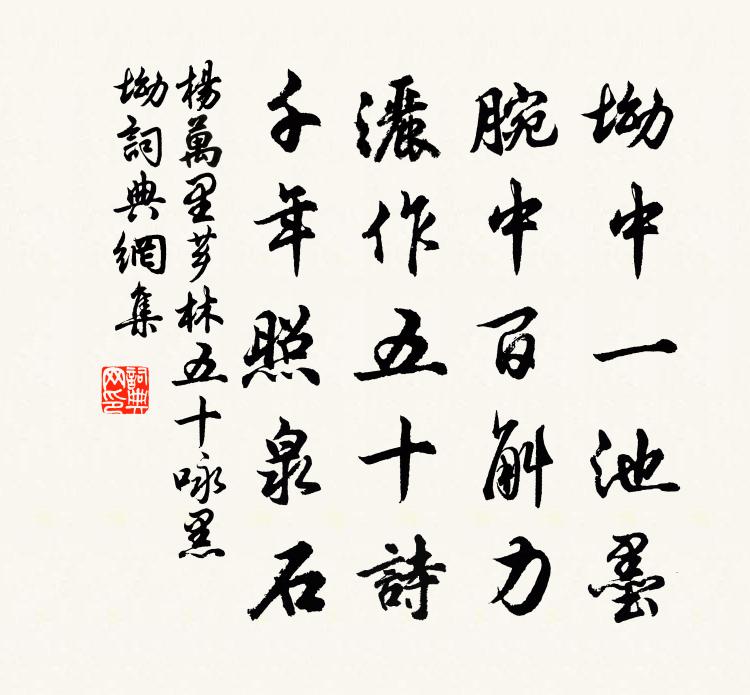 坳中一池墨
腕中百斛力
灑作五十詩
千年照泉石
楊萬里芗林五十咏墨
坳詞典網集
詞典网印